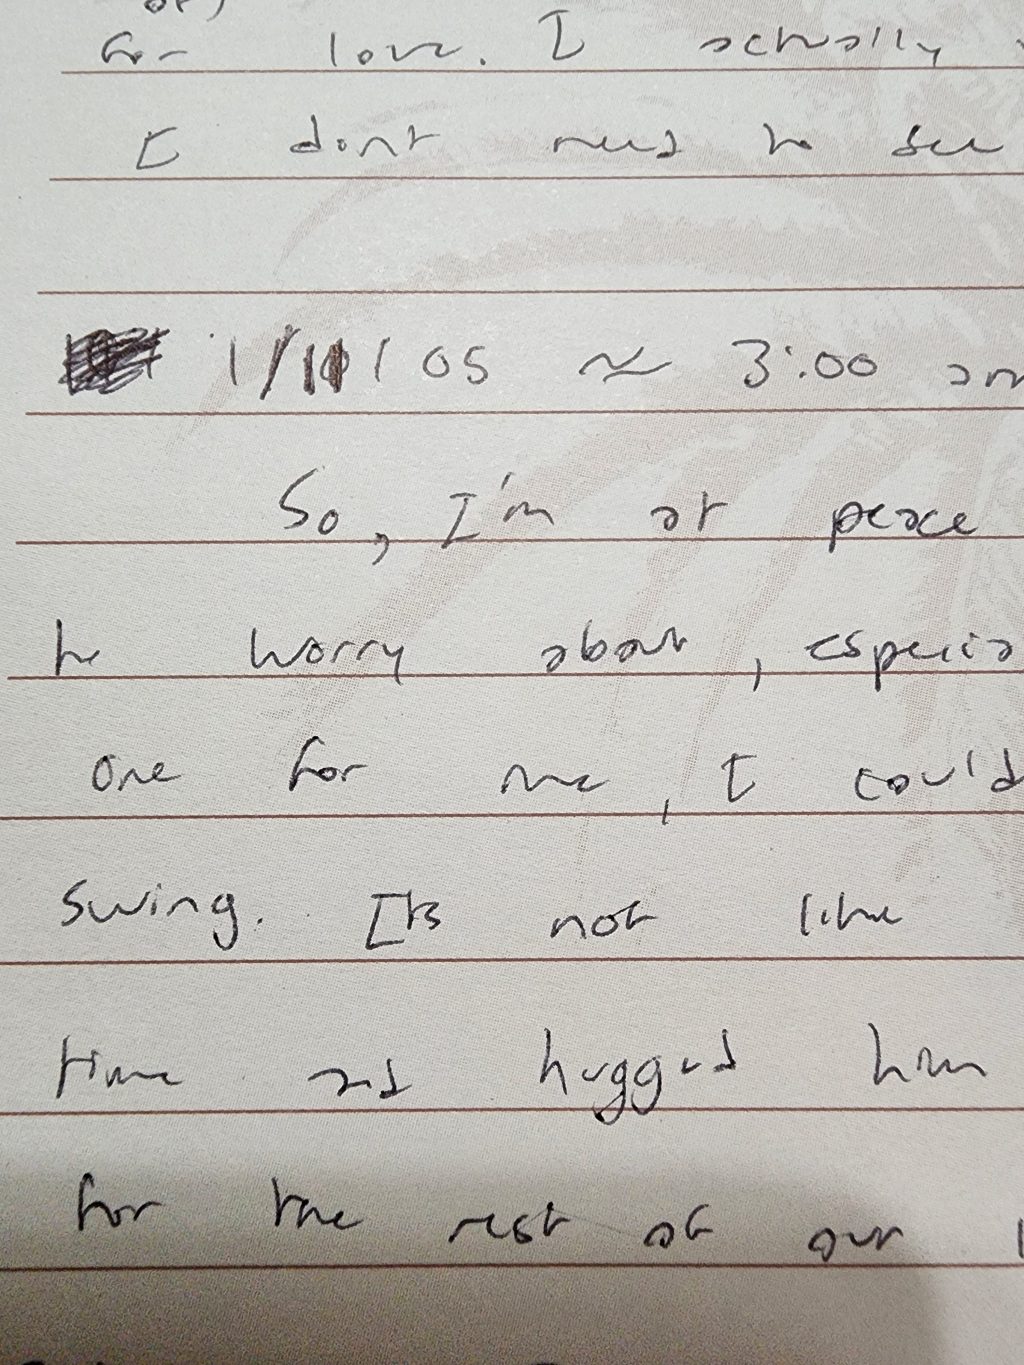 for love. I actually
I dont need to see
1/11/05 ~ 3:00 am
So, I'm at peace
to worry about, especia
one for me, I could
swing. Its not like
time and hugged him
for the rest of our